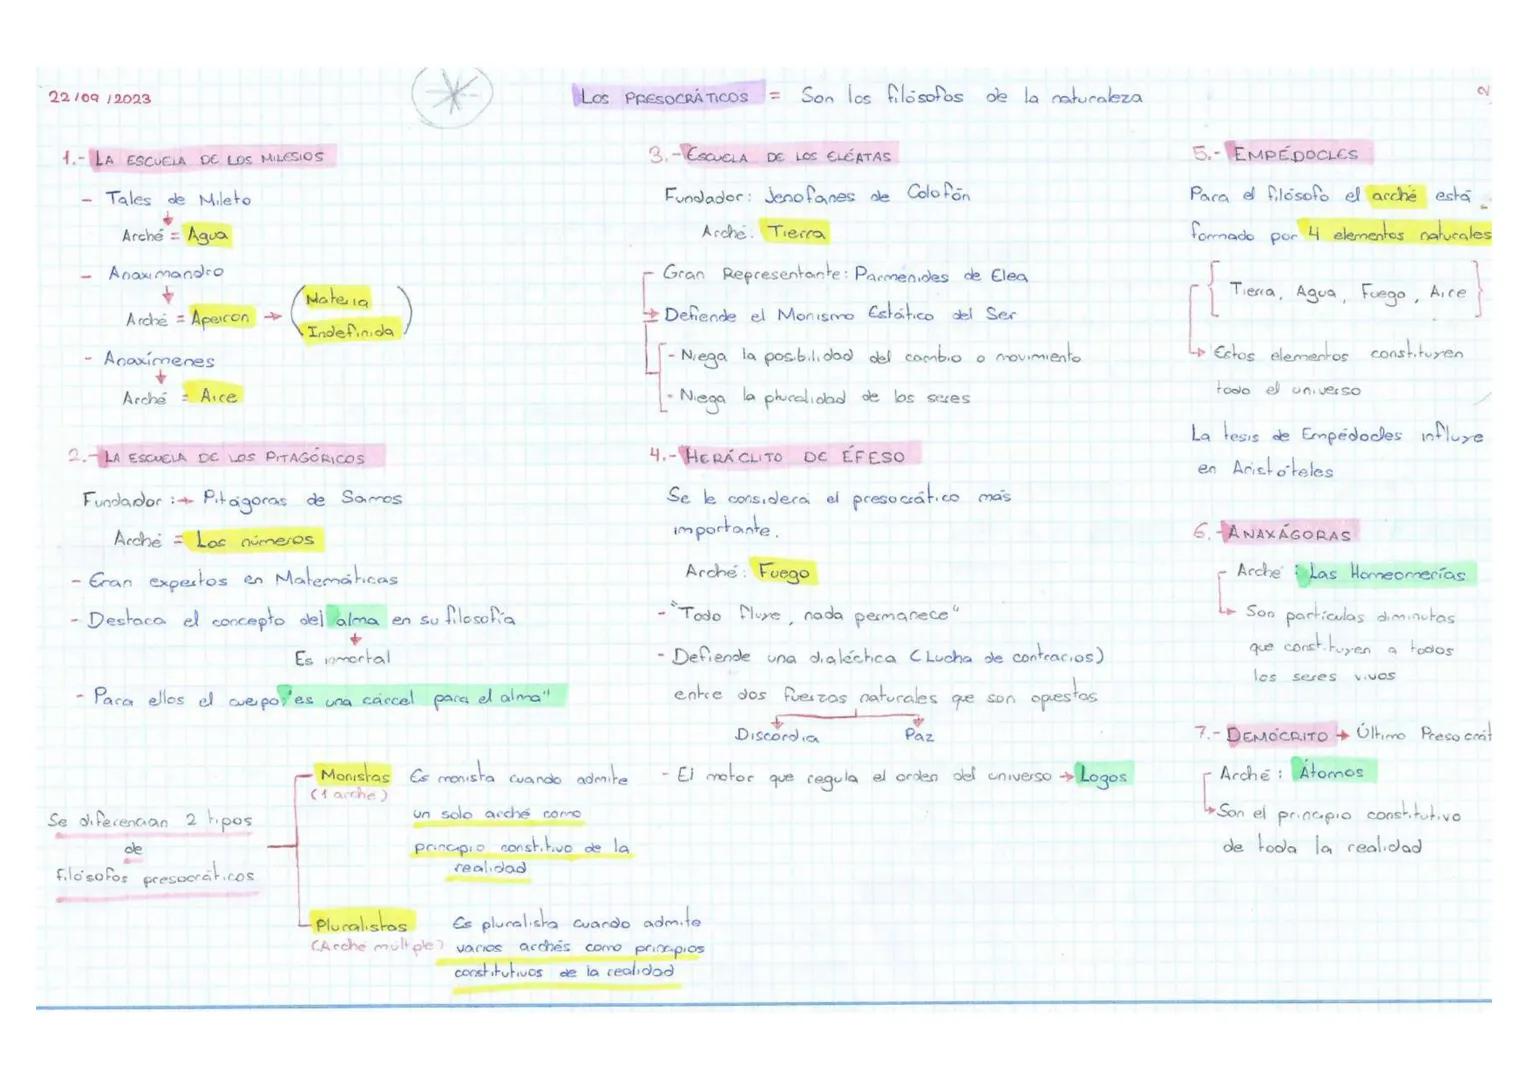 22/09/2023
LOS PRESOCRÁTICOS = Son los filósofos de la naturaleza
1.- LA ESCUELA DE LOS MILESIOS
- Tales de Mileto
Arché = Agua
- Anaximandro
Arché = Apeiron → (Materia
Indefinida)
- Anaxímenes
Arché = Aire
2.- LA ESCUELA DE LOS PITAGÓRICOS
Fundador :→ Pitágoras de Samos
Arché = Los números
- Eran expertos en Matemáticas
- Destaca el concepto del alma en su filosofía
Es inmortal
- Para ellos el cuerpo "es una cárcel para el alma"
Se diferencian 2 tipos
de
filósofos presocráticos
Monistas Es monista cuando admite
(1 arché)
un solo arché como
principio constitutivo de la
realidad
Pluralistas Es pluralista cuando admite
(Arché múltiple) varios archés como principios
constitutivos de la realidad
3.- ESCUELA DE LOS ELÉATAS
Fundador: Jenofanes de Colofón
Arché: Tierra
Gran Representante: Parménides de Elea
Defiende el Monismo Estático del Ser
- Niega la posibilidad del cambio o movimiento
- Niega la pluralidad de los seres
4.- HERÁCLITO DE ÉFESO
Se le considera el presocrático más
importante.
Arché: Fuego
- "Todo fluye, nada permanece"
- Defiende una dialéctica (Lucha de contrarios)
entre dos fuerzas naturales que son opuestas
Discordia Paz
- El motor que regula el orden del universo → Logos
5.- EMPÉDOCLES
Para el filósofo el arché está
formado por 4 elementos naturales
{ Tierra, Agua, Fuego, Aire }
Estos elementos constituyen
todo el universo
La tesis de Empédocles influye
en Aristóteles
6.- ANAXÁGORAS
Arché : Las Homeomerías
Son partículas diminutas
que constituyen a todos
los seres vivos
7.- DEMÓCRITO → Último Presocrát
Arché : Átomos
Son el principio constitutivo
de toda la realidad